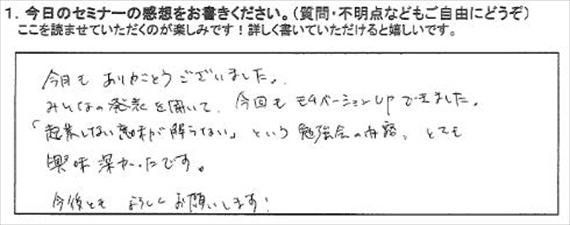 1. 今日のセミナーの感想をお書きください。（質問・不明点などもご自由にどうぞ）
ここを読ませていただくのが楽しみです！詳しく書いていただけると嬉しいです。
今日も ありがとうございました。
みんなの発表を聞いて、今回も モチベーションUPできました。
「起業しない意味が解らない」という勉強会の内容、とても
興味深かったです。
今後とも よろしくお願いします！